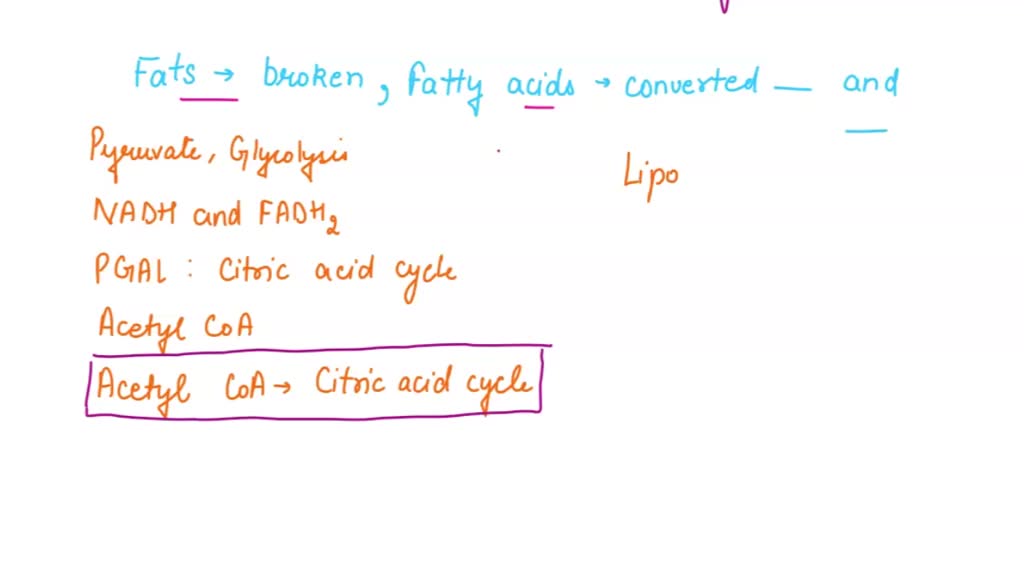 Fats → broken, fatty acids → converted — and
Pyruvate, Glycolysis
Lipo
NADH and FADH₂
PGAL : Citric acid cycle
Acetyl CoA
Acetyl CoA → Citric acid cycle